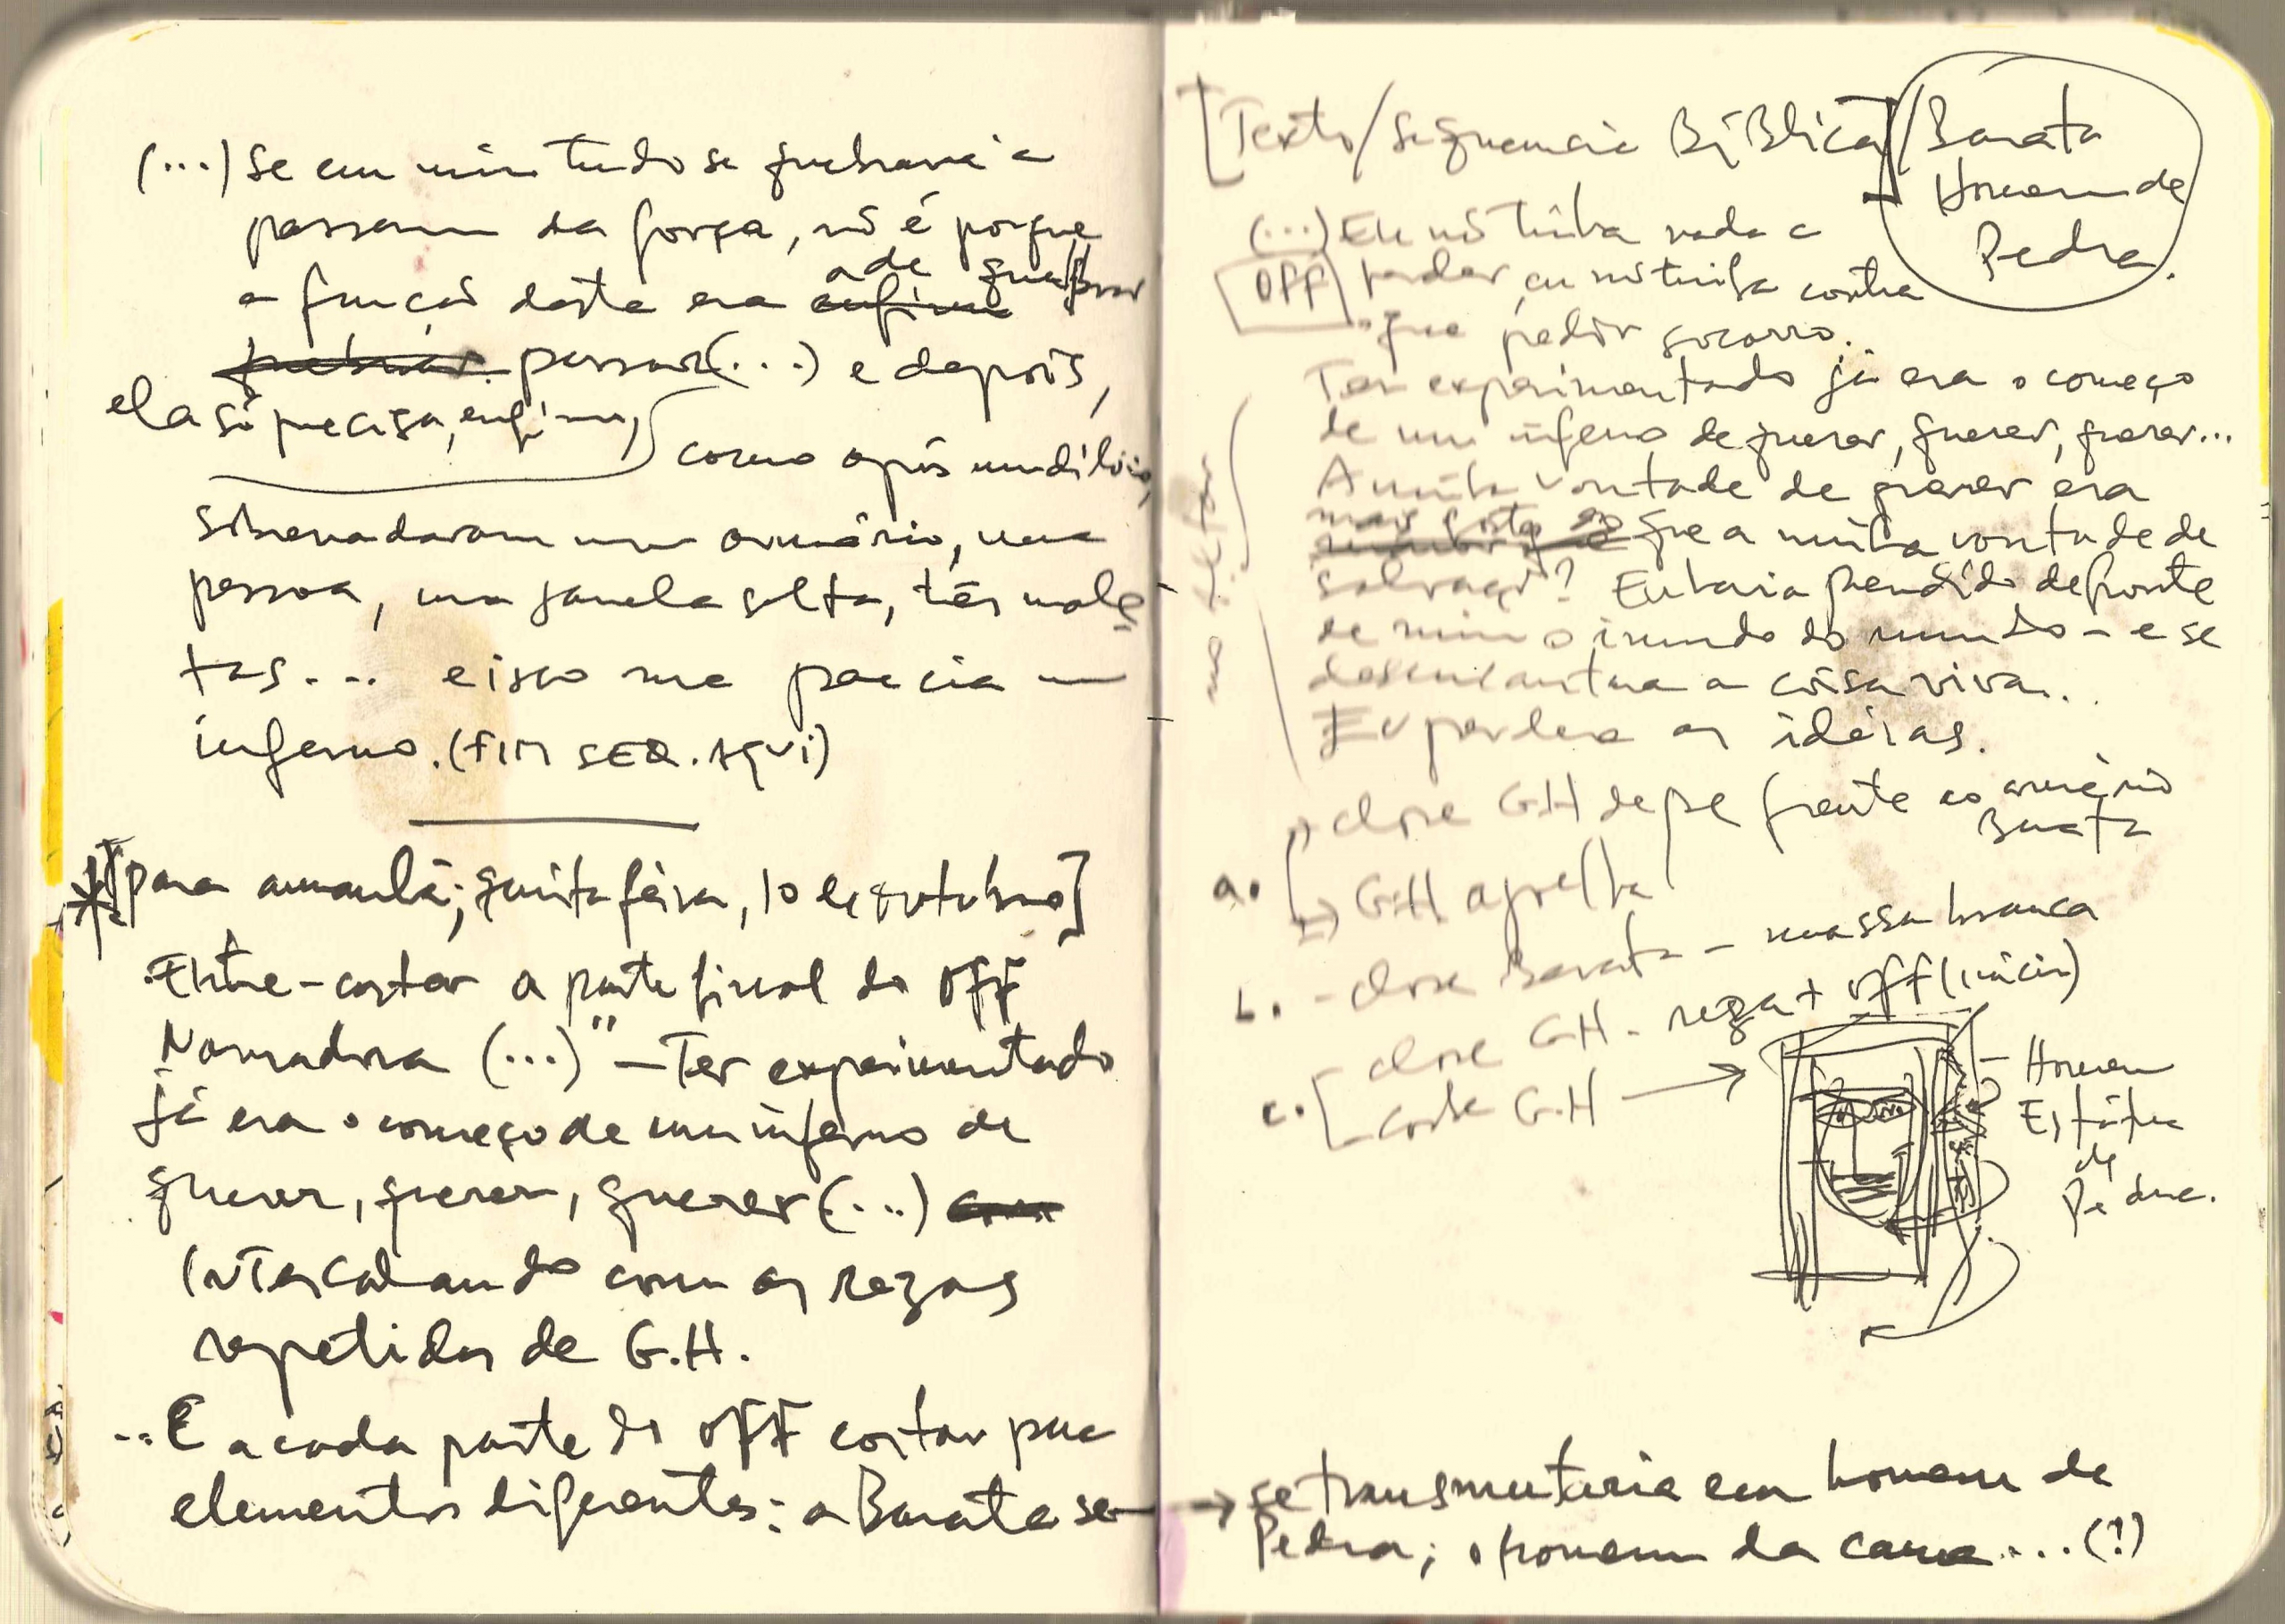 (...) Se em mim tudo se quebrava à
passagem da força, não é porque
a função desta era a de quebrar
passar (...) e depois,
ela só precisa, enfim,
como após um dilúvio,
sobrenadaram um armário, uma
pessoa, uma janela solta, três male-
tas... e isso me parecia um
inferno. (FIM SEQ. AQUI)
* [para amanhã; quinta feira, 10 de outubro]
Entre-cortar a parte final do OFF
Narradora (...) "— Ter experimentado
já era o começo de um inferno de
querer, querer, querer (...)
Intercalando com as rezas
repetidas de G.H.
... E a cada parte do OFF cortar para
elementos diferentes: a Barata se
[Texto/Sequencia BíBlica] / Barata
Homem de
Pedra.
(...) Ele não tinha nada a
OFF perder, eu não tinha contra
que pedir socorro.
Ter experimentado já era o começo
de um inferno de querer, querer, querer...
A minha vontade de querer era
mais forte do que a minha vontade de
salvação? Eu havia prendido defronte
de mim o imundo do mundo – e se
desencantara a coisa viva.
Eu perdera as idéias.
close GH de pé frente ao armário
Barata
a. [ → G.H ajoelha
b. - close Barata – massa branca
close GH - reza + OFF (início)
c. [ corte G.H →
– Homem
Estátua
de
Pedra.
→ se transmutaria em homem de
Pedra; o homem da carne.... (!)